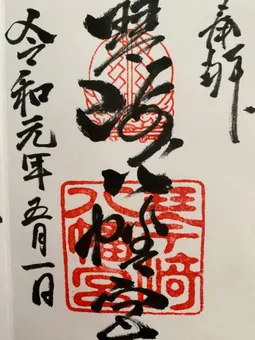 奉拝
琴崎八幡宮
琴崎
八幡宮
令和元年五月一日